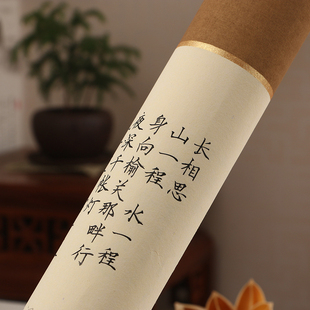 长相思
山一程 水一程
身向榆关那畔行
深千帐灯